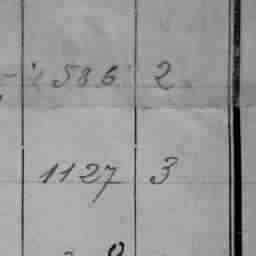 586 2
1127 3